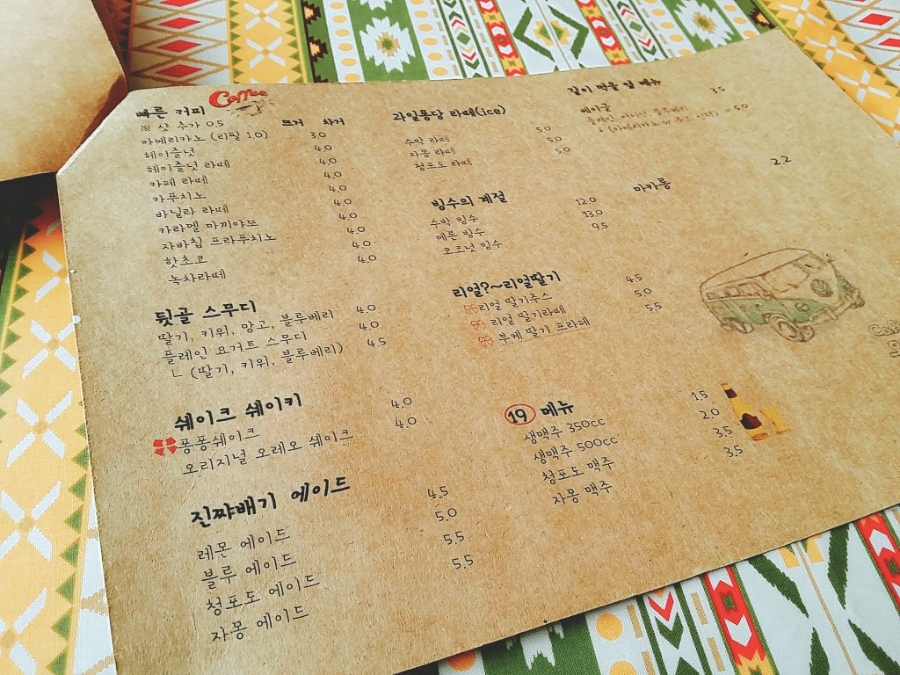 빠른 커피 Coffee
※ 샷 추가 0.5 뜨거 차거
아메리카노 (리필 1.0) 3.0
헤이즐넛 4.0
헤이즐넛 라떼 4.0
카페 라떼 4.0
카푸치노 4.0
바닐라 라떼 4.0
카라멜 마끼아또 4.0
자바칩 프라푸치노 4.0
핫초코 4.0
녹차라떼 4.0
뒷골 스무디
딸기, 키위, 망고, 블루베리 4.0
플레인 요거트 스무디 4.0
ㄴ (딸기, 키위, 블루베리) 4.5
쉐이크 쉐이키
퐁퐁쉐이크 4.0
오리지널 오레오 쉐이크 4.0
진쨔배기 에이드
레몬 에이드 4.5
블루 에이드 5.0
청포도 에이드 5.5
자몽 에이드 5.5
과일퐁당 라떼(ice)
수박 라떼 5.0
자몽 라떼 5.0
청포도 라떼 5.0
빙수의 계절
수박 빙수 12.0
메론 빙수 13.0
코코넛 빙수 9.5
리얼?~리얼딸기
리얼 딸기주스 4.5
리얼 딸기라떼 5.0
부케 딸기 프라페 5.5
19 메뉴
생맥주 350cc 1.5
생맥주 500cc 2.0
청포도 맥주 3.5
자몽 맥주 3.5
같이 먹을 일 메뉴
베이글 3.5
5.0
마카롱 2.2